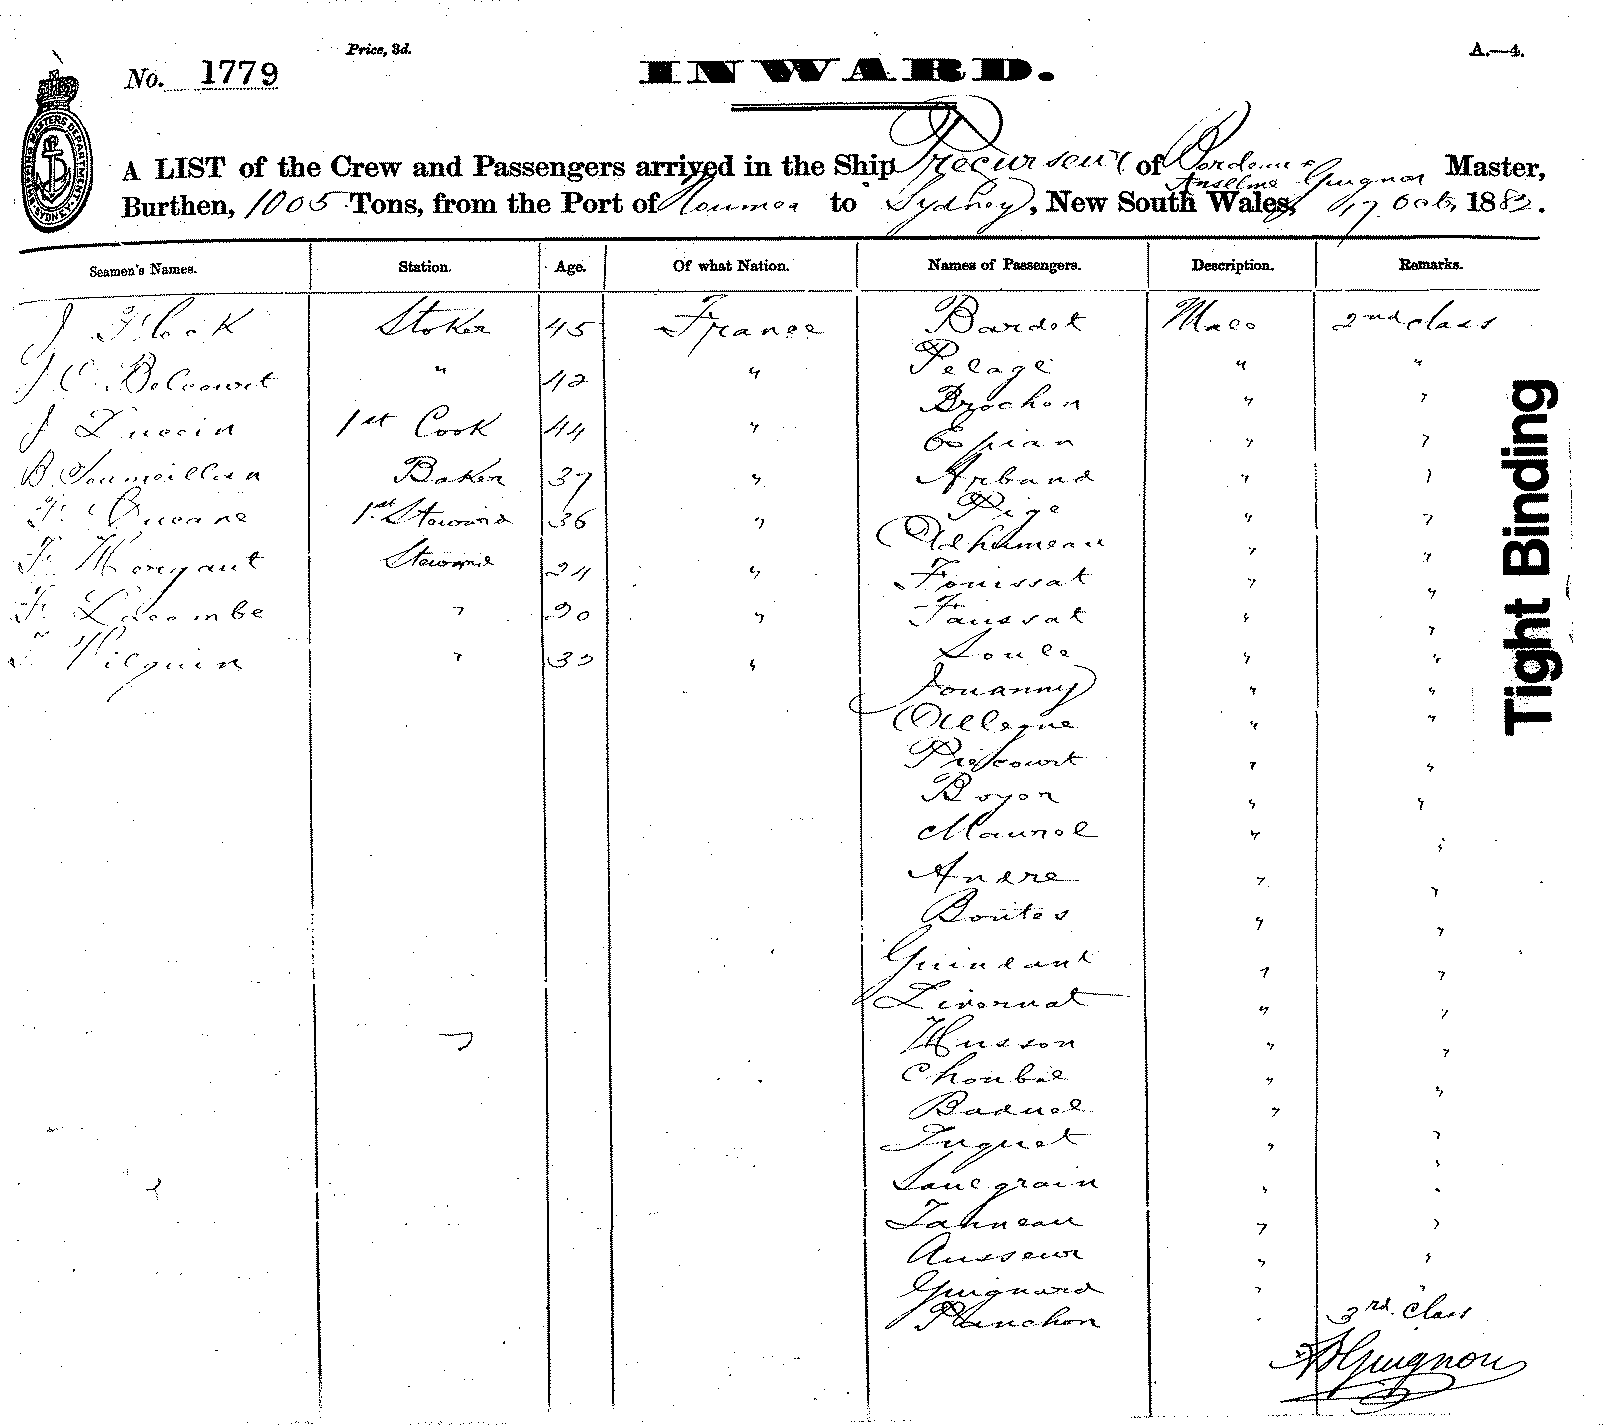 Price, 3d.
A.—4.
No. 1779
INWARD.
SHIPPING MASTERS DEPARTMENT SYDNEY
A LIST of the Crew and Passengers arrived in the Ship Precurseur of Bordeaux Anselme Guignon Master,
Burthen, 1005 Tons, from the Port of Noumea to Sydney, New South Wales, 17 Octr 1882.
Seamen's Names. Station. Age. Of what Nation. Names of Passengers. Description. Remarks.
J Flock Stoker 45 France Bardot Male 2nd class
J C Belcourt " 42 " Pelage " "
J 1st Cook 44 " Brochon " "
B Baker 37 " Espian " "
F. 1st Steward 36 " Arband " "
F. Steward 24 " Pige " "
F. Lacombe " 20 " Adhumeau " "
F Pilquin " " Fouissat " "
Faussat " "
Loule " "
Jouanny " "
Allegne " "
" "
Boyon " "
Maurel " "
Andre " "
Boutes " "
Guineant " "
Livernat " "
Husson " "
Choubie " "
Baduel " "
Juquet " "
Sauegrain " "
Tanneau " "
Ausseur " "
Guignard " "
Planchon " 3rd Class
A Guignon
Tight Binding